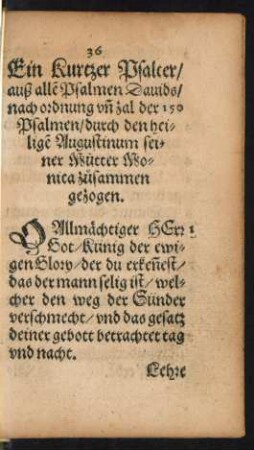 36
Ein Kurtzer Psalter/
auß allẽ Psalmen Dauids/
nach ordnung vñ zal der 150
Psalmen/durch den hei-
ligẽ Augustinum sei-
ner Mütter Mo-
nica zůsammen
gezogen.
O Allmächtiger HErr 1
Got/Künig der ewi-
gen Glory/der du erkeñest/
das der mann selig ist/wel-
cher den weg der Sünder
verschmecht/vnd das gesatz
deiner gebott betrachtet tag
vnd nacht.
Lehre